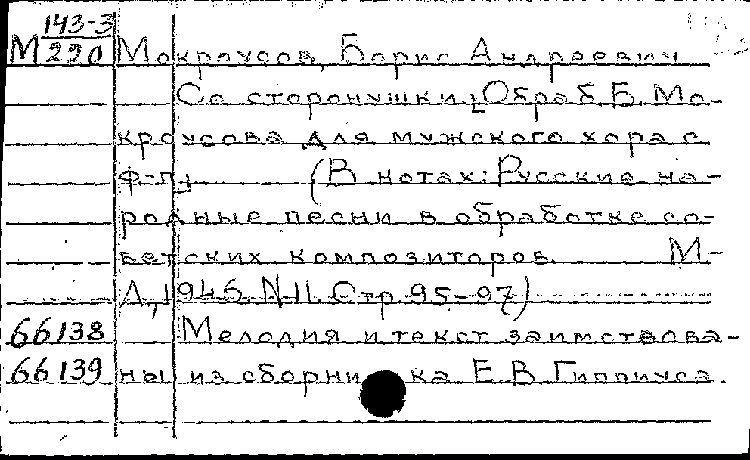 143-3
М 290 Мокроусов, Борис Андреевич
Со сторонушки. [Обраб. Б. Мо-
кроусова для мужского хора с
ф-п.] (В нотах: Русские на-
родные песни в обработке со-
ветских композиторов. М.-
Л., 1945. N II. Стр. 95-97)
66138 Мелодия и текст заимствова-
66139 ны из сборника Е.В. Гиппиуса.